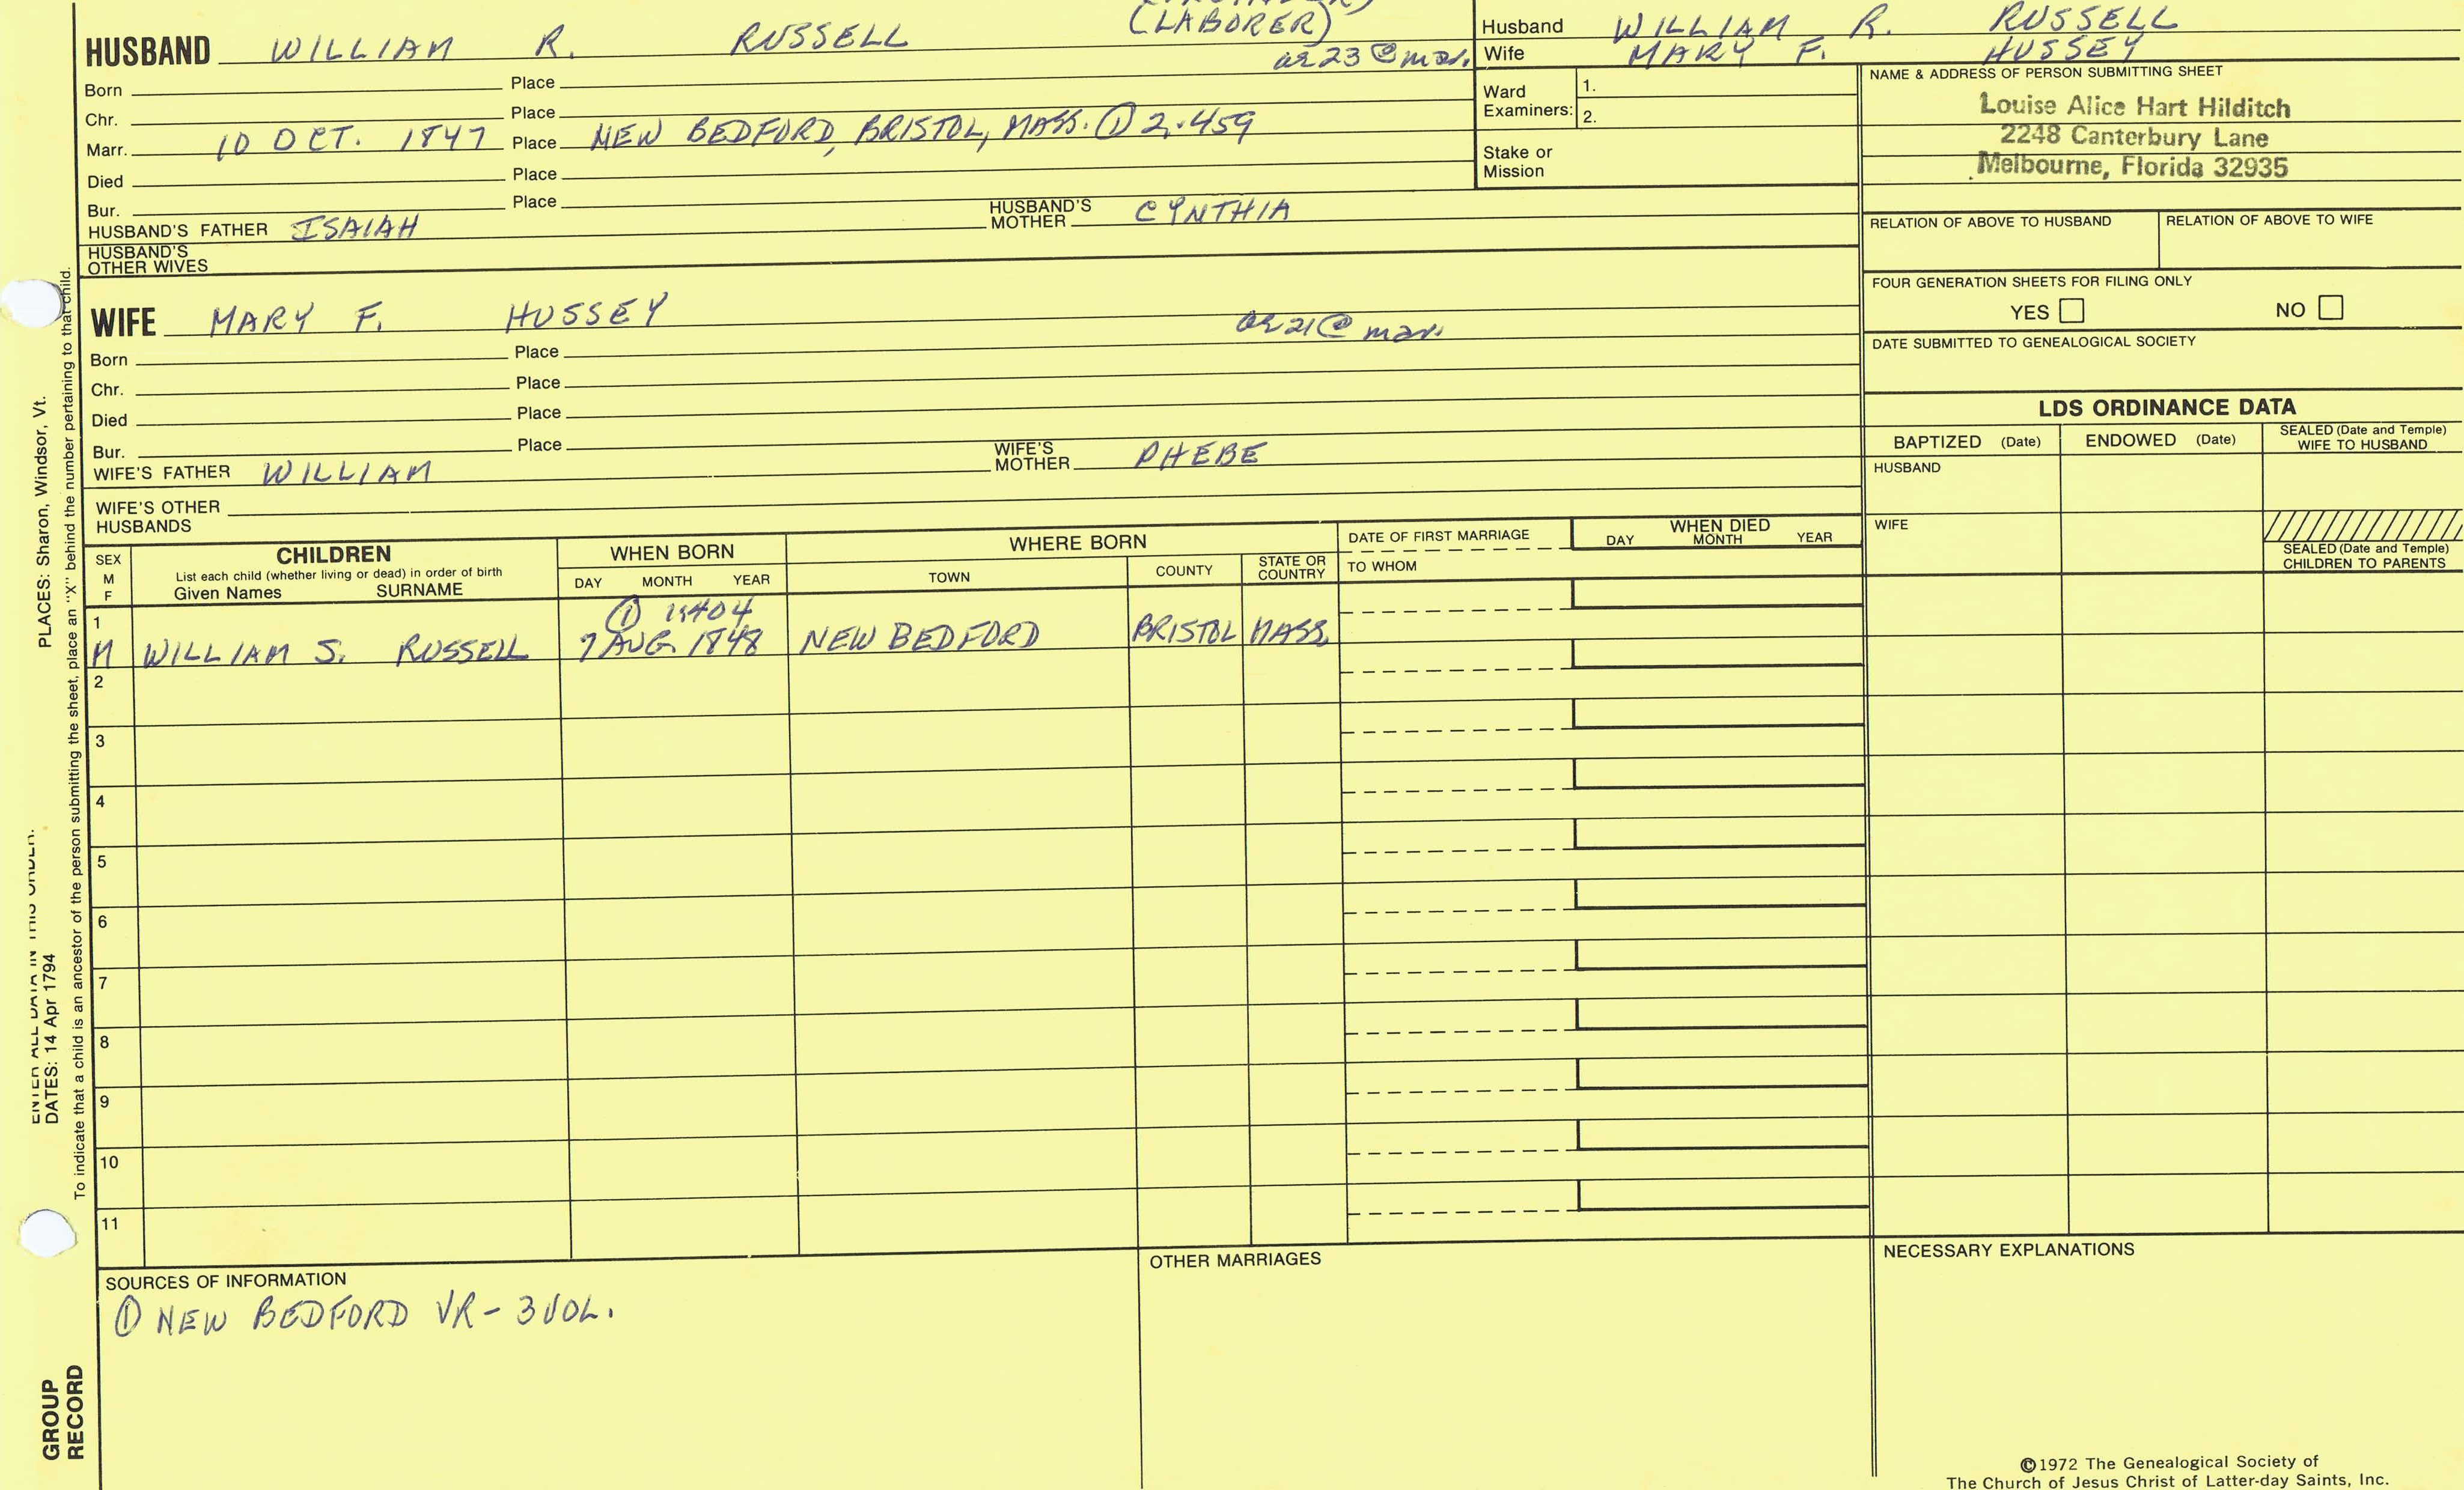 (LABORER)
HUSBAND WILLIAM R. RUSSELL
ae 23 @ mar.
Husband WILLIAM R. RUSSELL
Wife MARY F. HUSSEY
Born Place
Chr. Place
Marr. 10 OCT. 1847 Place NEW BEDFORD, BRISTOL, MASS. ① 2:459
Died Place
Bur. Place
HUSBAND'S FATHER ISAIAH HUSBAND'S MOTHER CYNTHIA
HUSBAND'S OTHER WIVES
Ward Examiners: 1.
2.
Stake or Mission
NAME & ADDRESS OF PERSON SUBMITTING SHEET
Louise Alice Hart Hilditch
2248 Canterbury Lane
Melbourne, Florida 32935
RELATION OF ABOVE TO HUSBAND RELATION OF ABOVE TO WIFE
FOUR GENERATION SHEETS FOR FILING ONLY
YES NO
DATE SUBMITTED TO GENEALOGICAL SOCIETY
WIFE MARY F. HUSSEY
ae 21 @ mar.
Born Place
Chr. Place
Died Place
Bur. Place
WIFE'S FATHER WILLIAM WIFE'S MOTHER PHEBE
WIFE'S OTHER HUSBANDS
LDS ORDINANCE DATA
BAPTIZED (Date) ENDOWED (Date) SEALED (Date and Temple) WIFE TO HUSBAND
HUSBAND
WIFE
SEALED (Date and Temple) CHILDREN TO PARENTS
SEX M F
CHILDREN
List each child (whether living or dead) in order of birth
Given Names SURNAME
WHEN BORN
DAY MONTH YEAR
WHERE BORN
TOWN COUNTY STATE OR COUNTRY
DATE OF FIRST MARRIAGE
TO WHOM
WHEN DIED
DAY MONTH YEAR
1 ① 1:404
M WILLIAM S. RUSSELL 7 AUG. 1848 NEW BEDFORD BRISTOL MASS.
2
3
4
5
6
7
8
9
10
11
SOURCES OF INFORMATION
① NEW BEDFORD VR - 3 VOL.
OTHER MARRIAGES
NECESSARY EXPLANATIONS
©1972 The Genealogical Society of
The Church of Jesus Christ of Latter-day Saints, Inc.
ENTER ALL DATA IN THIS ORDER:
DATES: 14 Apr 1794 PLACES: Sharon, Windsor, Vt.
To indicate that a child is an ancestor of the person submitting the sheet, place an "X" behind the number pertaining to that child.
GROUP
RECORD